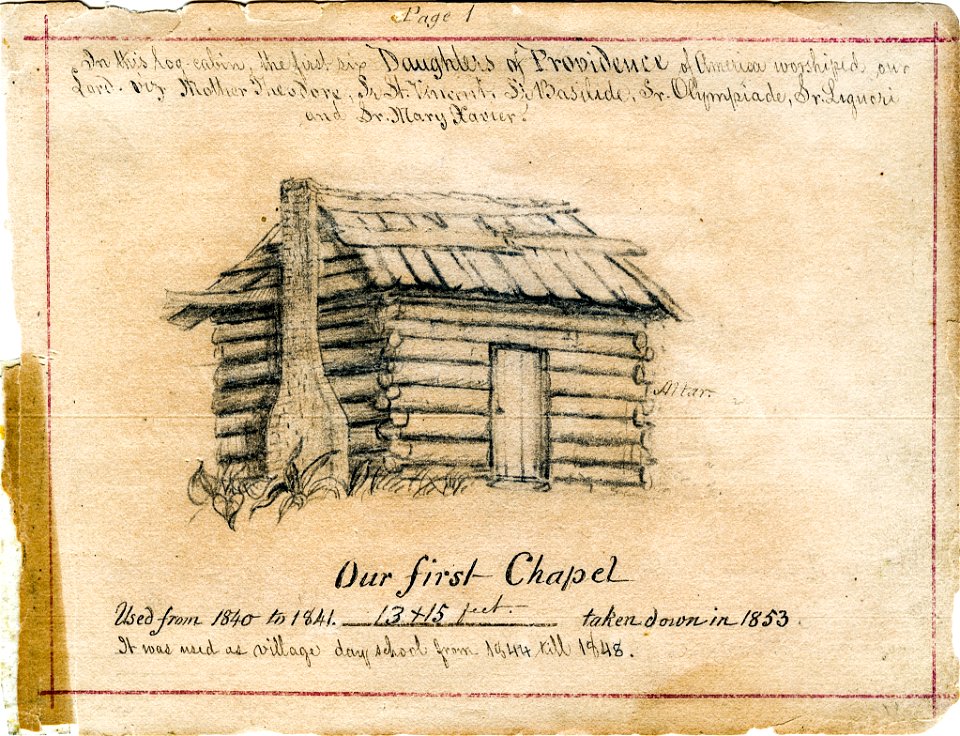 Page 1
In this Log-cabin, the first six Daughters of Providence of America worshiped our
Lord. viz Mother Theodore, Sr. St. Vincent, Sr. Basilide, Sr. Olympiade, Sr. Liguori
and Sr. Mary Xavier.
Altar.
Our first Chapel
Used from 1840 to 1841. 13 x 15 feet. taken down in 1853.
It was used as village day school from 1844 till 1848.